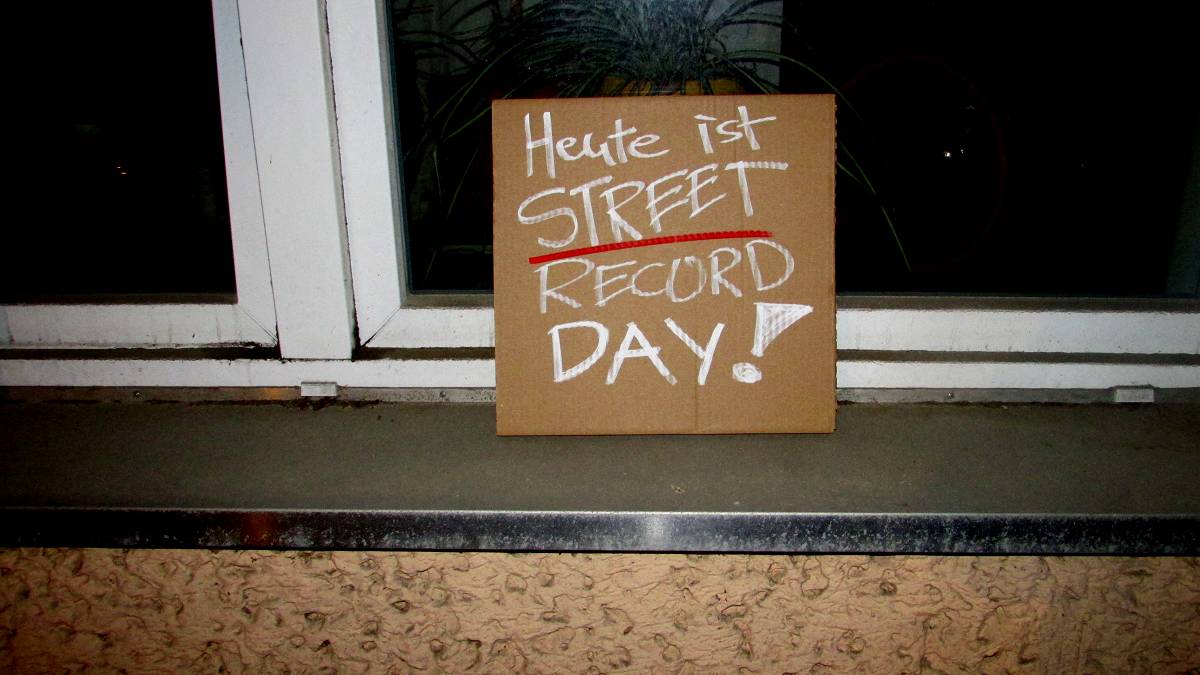 Heute ist
STREET
RECORD
DAY!